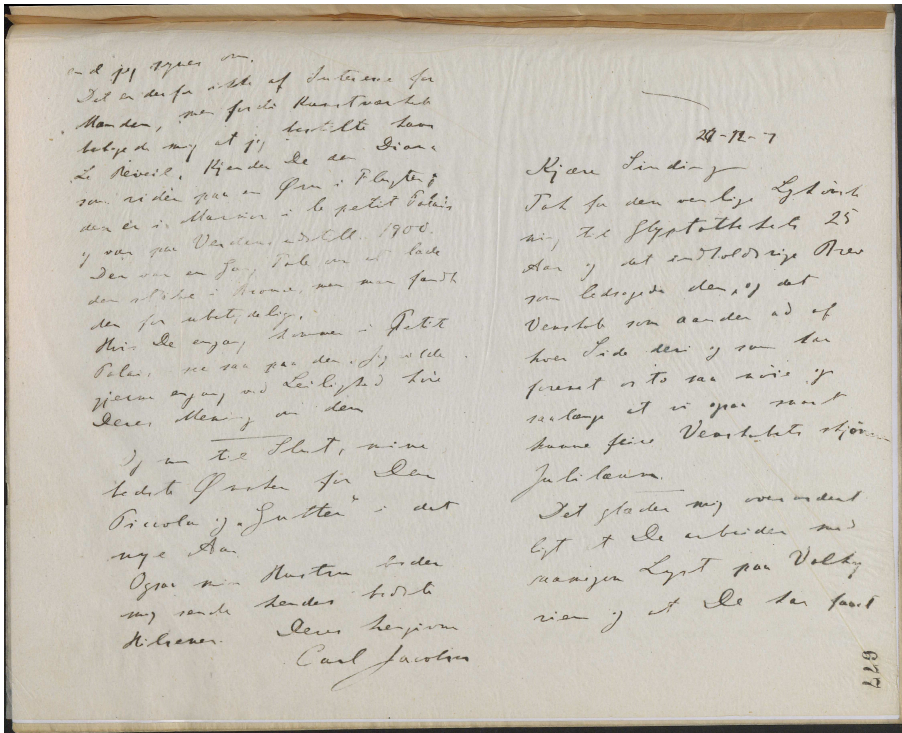 jeg synes om.
Det er derfor ikke af Interesse for
Manden, men fordi Kunstværket
betog mig at jeg bestilte hans
Le Réveil. Kjender De den Diana
som rider paa en Ørn i Flugten;
den er i Marmor i le petit Palais
og var paa Verdensudstill. 1900.
Der var en Gang Tale om at lade
den støbe i Bronce, men man fandt
den for ubetydelig.
Hvis De engang kommer i Petit
Palais, se saa paa den. Jeg vilde
gjerne engang ved Leilighed høre
Deres Mening om den
Og nu til Slut, mine
bedste Ønsker for Den
Piccola og "Gutten" i det
nye Aar
Ogsaa min Hustru beder
mig sende hendes bedste
Hilsener. Deres hengivne
Carl Jacobsen
-12-7
Kjære Sinding
Tak for den venlige Lykønsk
ning til Glyptothekets 25
Aar og det indholdsrige Brev
som ledsagede den, og det
Venskab som aander ud af
hver Side deri og som har
forenet os to saa nøie og
saalænge at vi ogsaa snart
kunne feire Venskabets skjønne
Jubilæum.
Det glæder mig overordent
ligt at De arbeider med
saamegen Lyst paa Valky
rien og at De har faaet
677